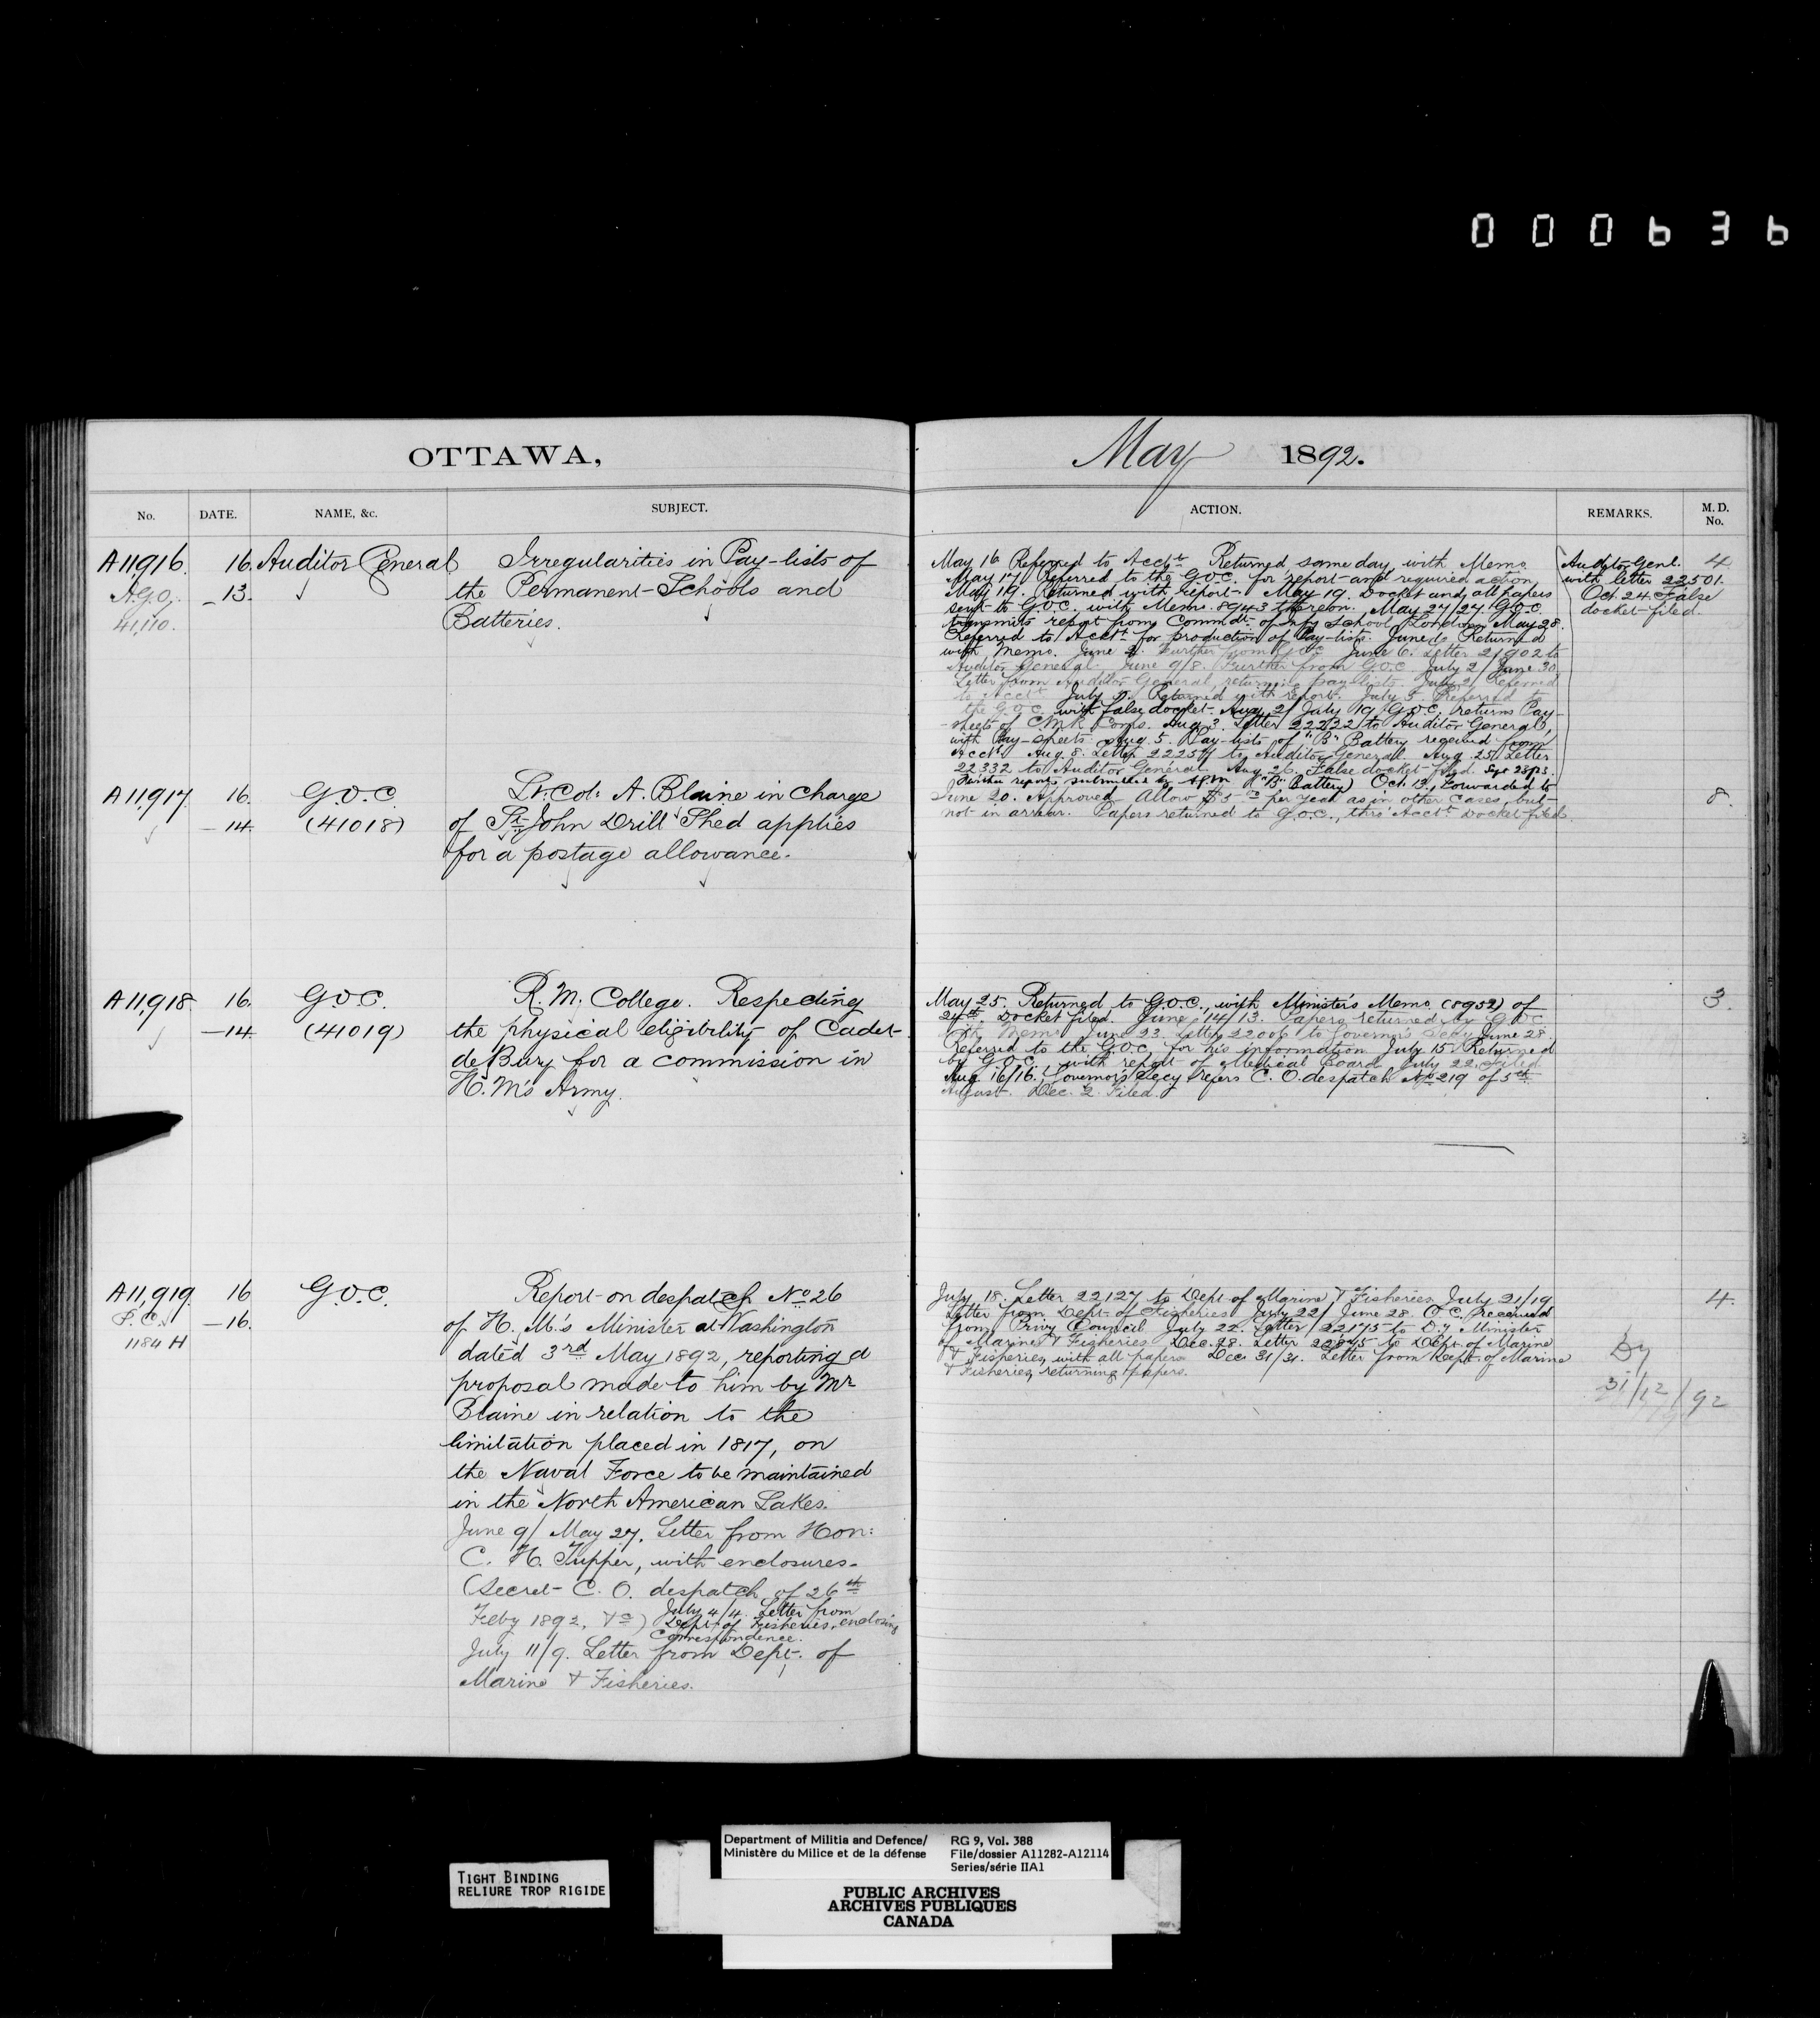 000636
OTTAWA,
May 1892.
No.
DATE.
NAME, &c.
SUBJECT.
ACTION.
REMARKS.
M. D. No.
A11916. 16. Auditor General Irregularities in Pay-lists of
A.G.O. — 13. the Permanent Schools and
41,110. Batteries.
May 16 Referred to Acct.t Returned same day, with Memo.
May 17 Referred to the G.O.C. for report and required action,
May 19. Returned with report. May 19. Docket and all papers
sent to G.O.C. with Memo. 8943 thereon. May 27/27 G.O.C.
transmits report from Commdt. of Infy School, London May 28.
Referred to Acct.t for production of Pay-lists. June Returned
with Memo. June 2. Further from G.O.C. June 6. Letter 21902 to
Auditor General. June 9/8. Further from G.O.C. July 2/June 30
Letter from Auditor General, returning pay lists. July 2/ Referred
to Acct.t July Returned with report. July 5. Referred to
the G.O.C. with false docket. Aug. 2/July 19 G.O.C. returns Pay-
-sheets of C.M.R. Corps. Aug. 3. Letter 22232 to Auditor General,
with Pay-sheets. Aug. 5. Pay-lists of "B" Battery received from
Acct.t Aug. 8. Letter 22257 to Auditor General. Aug. 25. Letter
22332 to Auditor General. Aug. 26. False docket filed. Sept 28/23.
Further report submitted by ("B" Battery) Oct. 13, Forwarded to
Auditor Genl.
with letter 22501.
Oct. 24. False
docket filed.
4
A11,917 16. G.O.C. Lt. Col: A. Blaine in charge
— 14. (41018) of St. John Drill Shed applies
for a postage allowance.
June 20. Approved. Allow $5 00 per year as in other cases, but
not in arrear. Papers returned to G.O.C., thro' Acct.t Docket filed.
8.
A11,918 16. G.O.C. R. M. College. Respecting
— 14. (41019) the physical eligibility of Cadet
de Bury for a commission in
H. M's Army.
May 25. Returned to G.O.C., with Minister's Memo (8952) of
24th. Docket filed. June 14/13. Papers returned by G.O.C.
with Memo. June 23. Letter 22006 to Governor's Secy. June 28.
Referred to the G.O.C. for his information July 15. Returned
by G.O.C. with report of Medical Board July 22. Filed.
Aug. 16/16. Governor's Secy refers C. O. despatch No 219 of 5th
August. Dec. 2. Filed.
3.
A11,919. 16 G.O.C. Report on despatch No 26
P. C. — 16. of H. M.'s Minister at Washington
1184 H dated 3rd May 1892, reporting a
proposal made to him by Mr
Blaine in relation to the
limitation placed in 1817, on
the Naval Force to be maintained
in the North American Lakes.
June 9/ May 27. Letter from Hon:
C. H. Tupper, with enclosures.
(Secret C. O. despatch of 26th
Feby 1892, &c) July 4/4. Letter from
Dept. of Fisheries, enclosing
Correspondence.
July 11/9. Letter from Dept. of
Marine & Fisheries.
July 18. Letter 22127 to Dept. of Marine & Fisheries July 21/19
Letter from Dept. of Fisheries July 22/ June 28. O.C. received
from Privy Council July 22. Letter 22175 to Dy Minister
of Marine & Fisheries Dec. 28. Letter 22875 to Dept. of Marine
& Fisheries, with all papers Dec. 31/31. Letter from Dept. of Marine
& Fisheries, returning papers.
Dy
31/12/92
4.
TIGHT BINDING
RELIURE TROP RIGIDE
Department of Militia and Defence/
Ministère du Milice et de la défense
RG 9, Vol. 388
File/dossier A11282-A12114
Series/série IIA1
PUBLIC ARCHIVES
ARCHIVES PUBLIQUES
CANADA